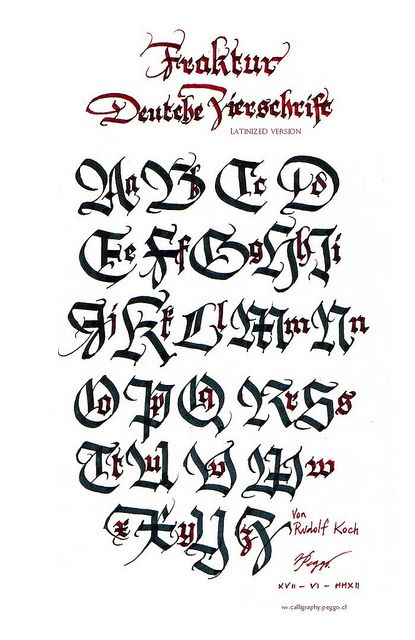 Fraktur
Deutche Zierschrift
LATINIZED VERSION
A a B b C c D d
E e F f G g H h I i
J j K k L l M m N n
O o P p Q q R r S s
T t U u V v W w
x X y Y z Z
Von
Rudolf Koch
Peggo
XVII – VI – MMXII
w.calligraphy.peggo.cl